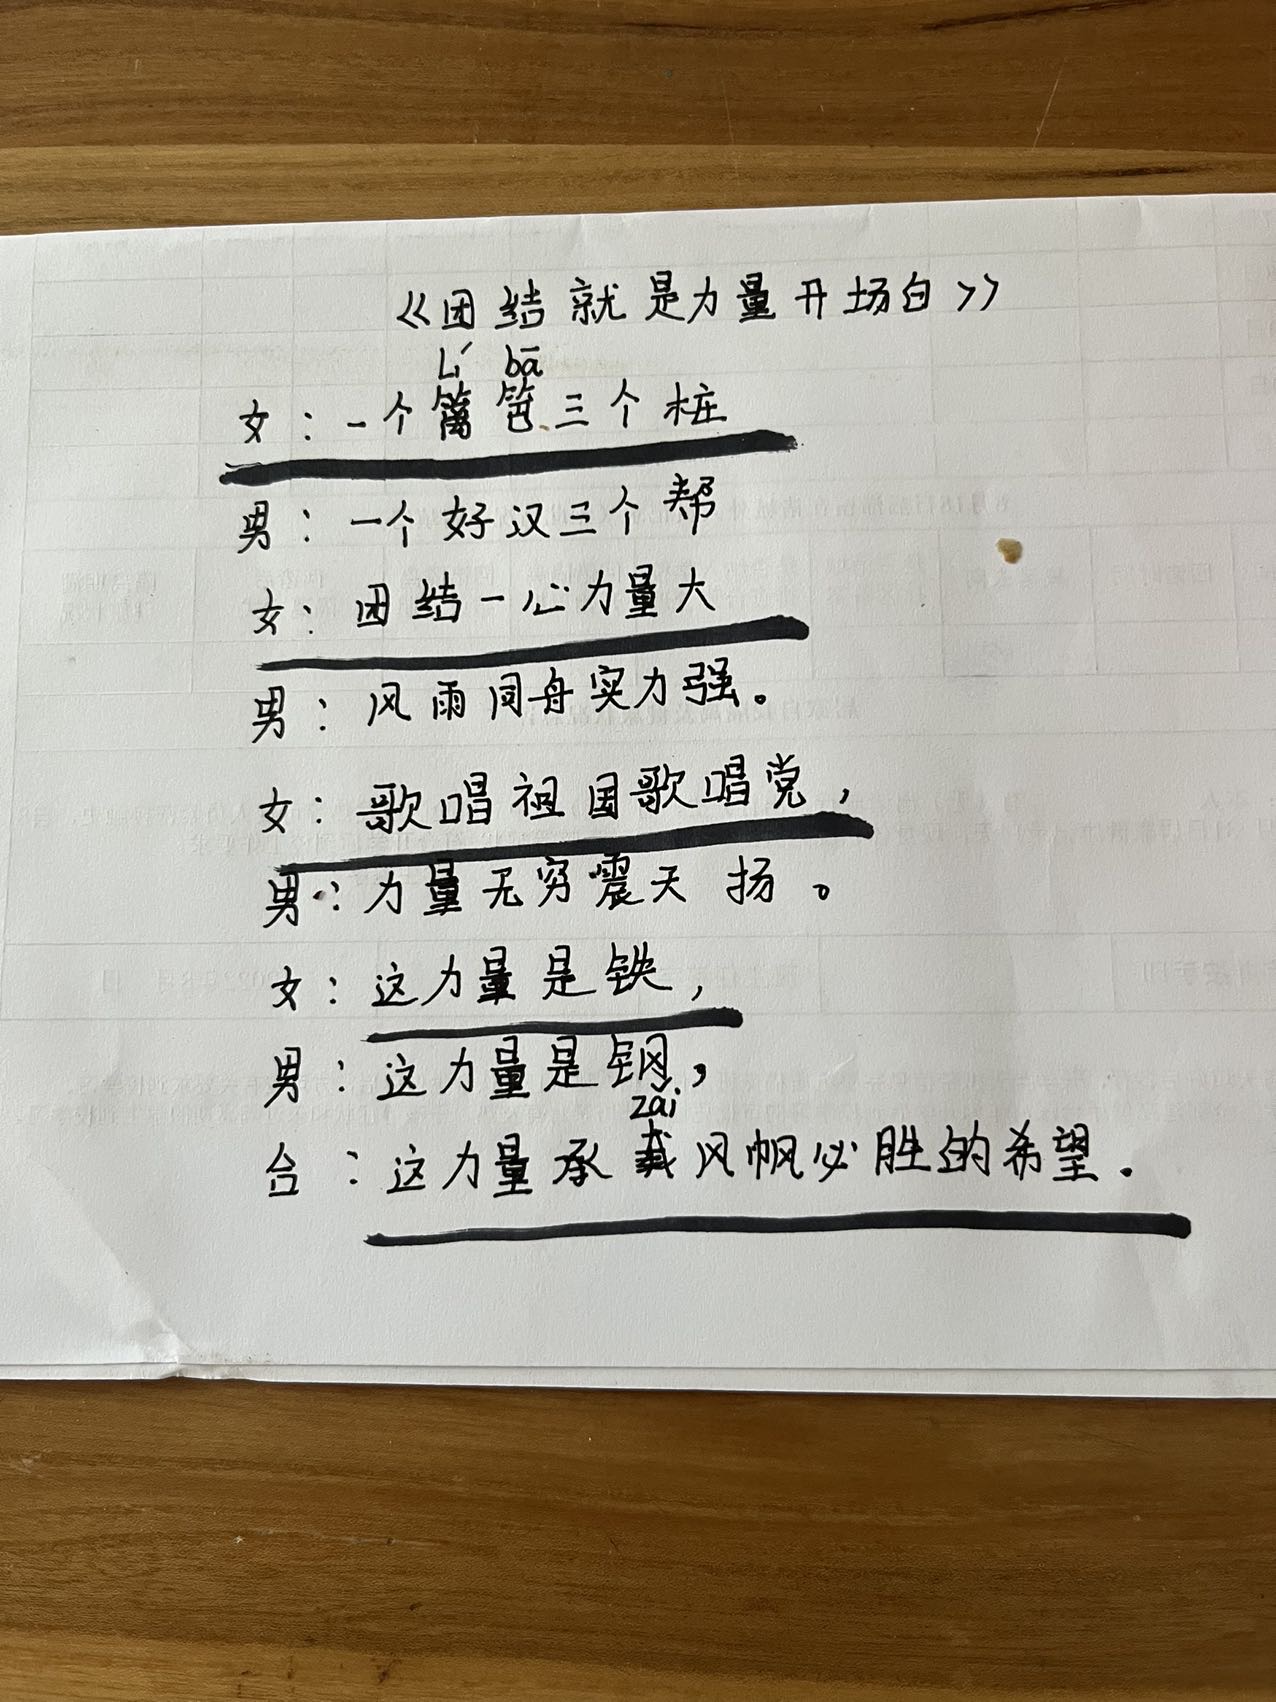 《团结就是力量开场白》
Lí bā
女：一个篱笆三个桩
男：一个好汉三个帮
女：团结一心力量大
男：风雨同舟实力强。
女：歌唱祖国歌唱党，
男：力量无穷震天扬。
女：这力量是铁，
男：这力量是钢，
zǎi
合：这力量承载风帆必胜的希望.